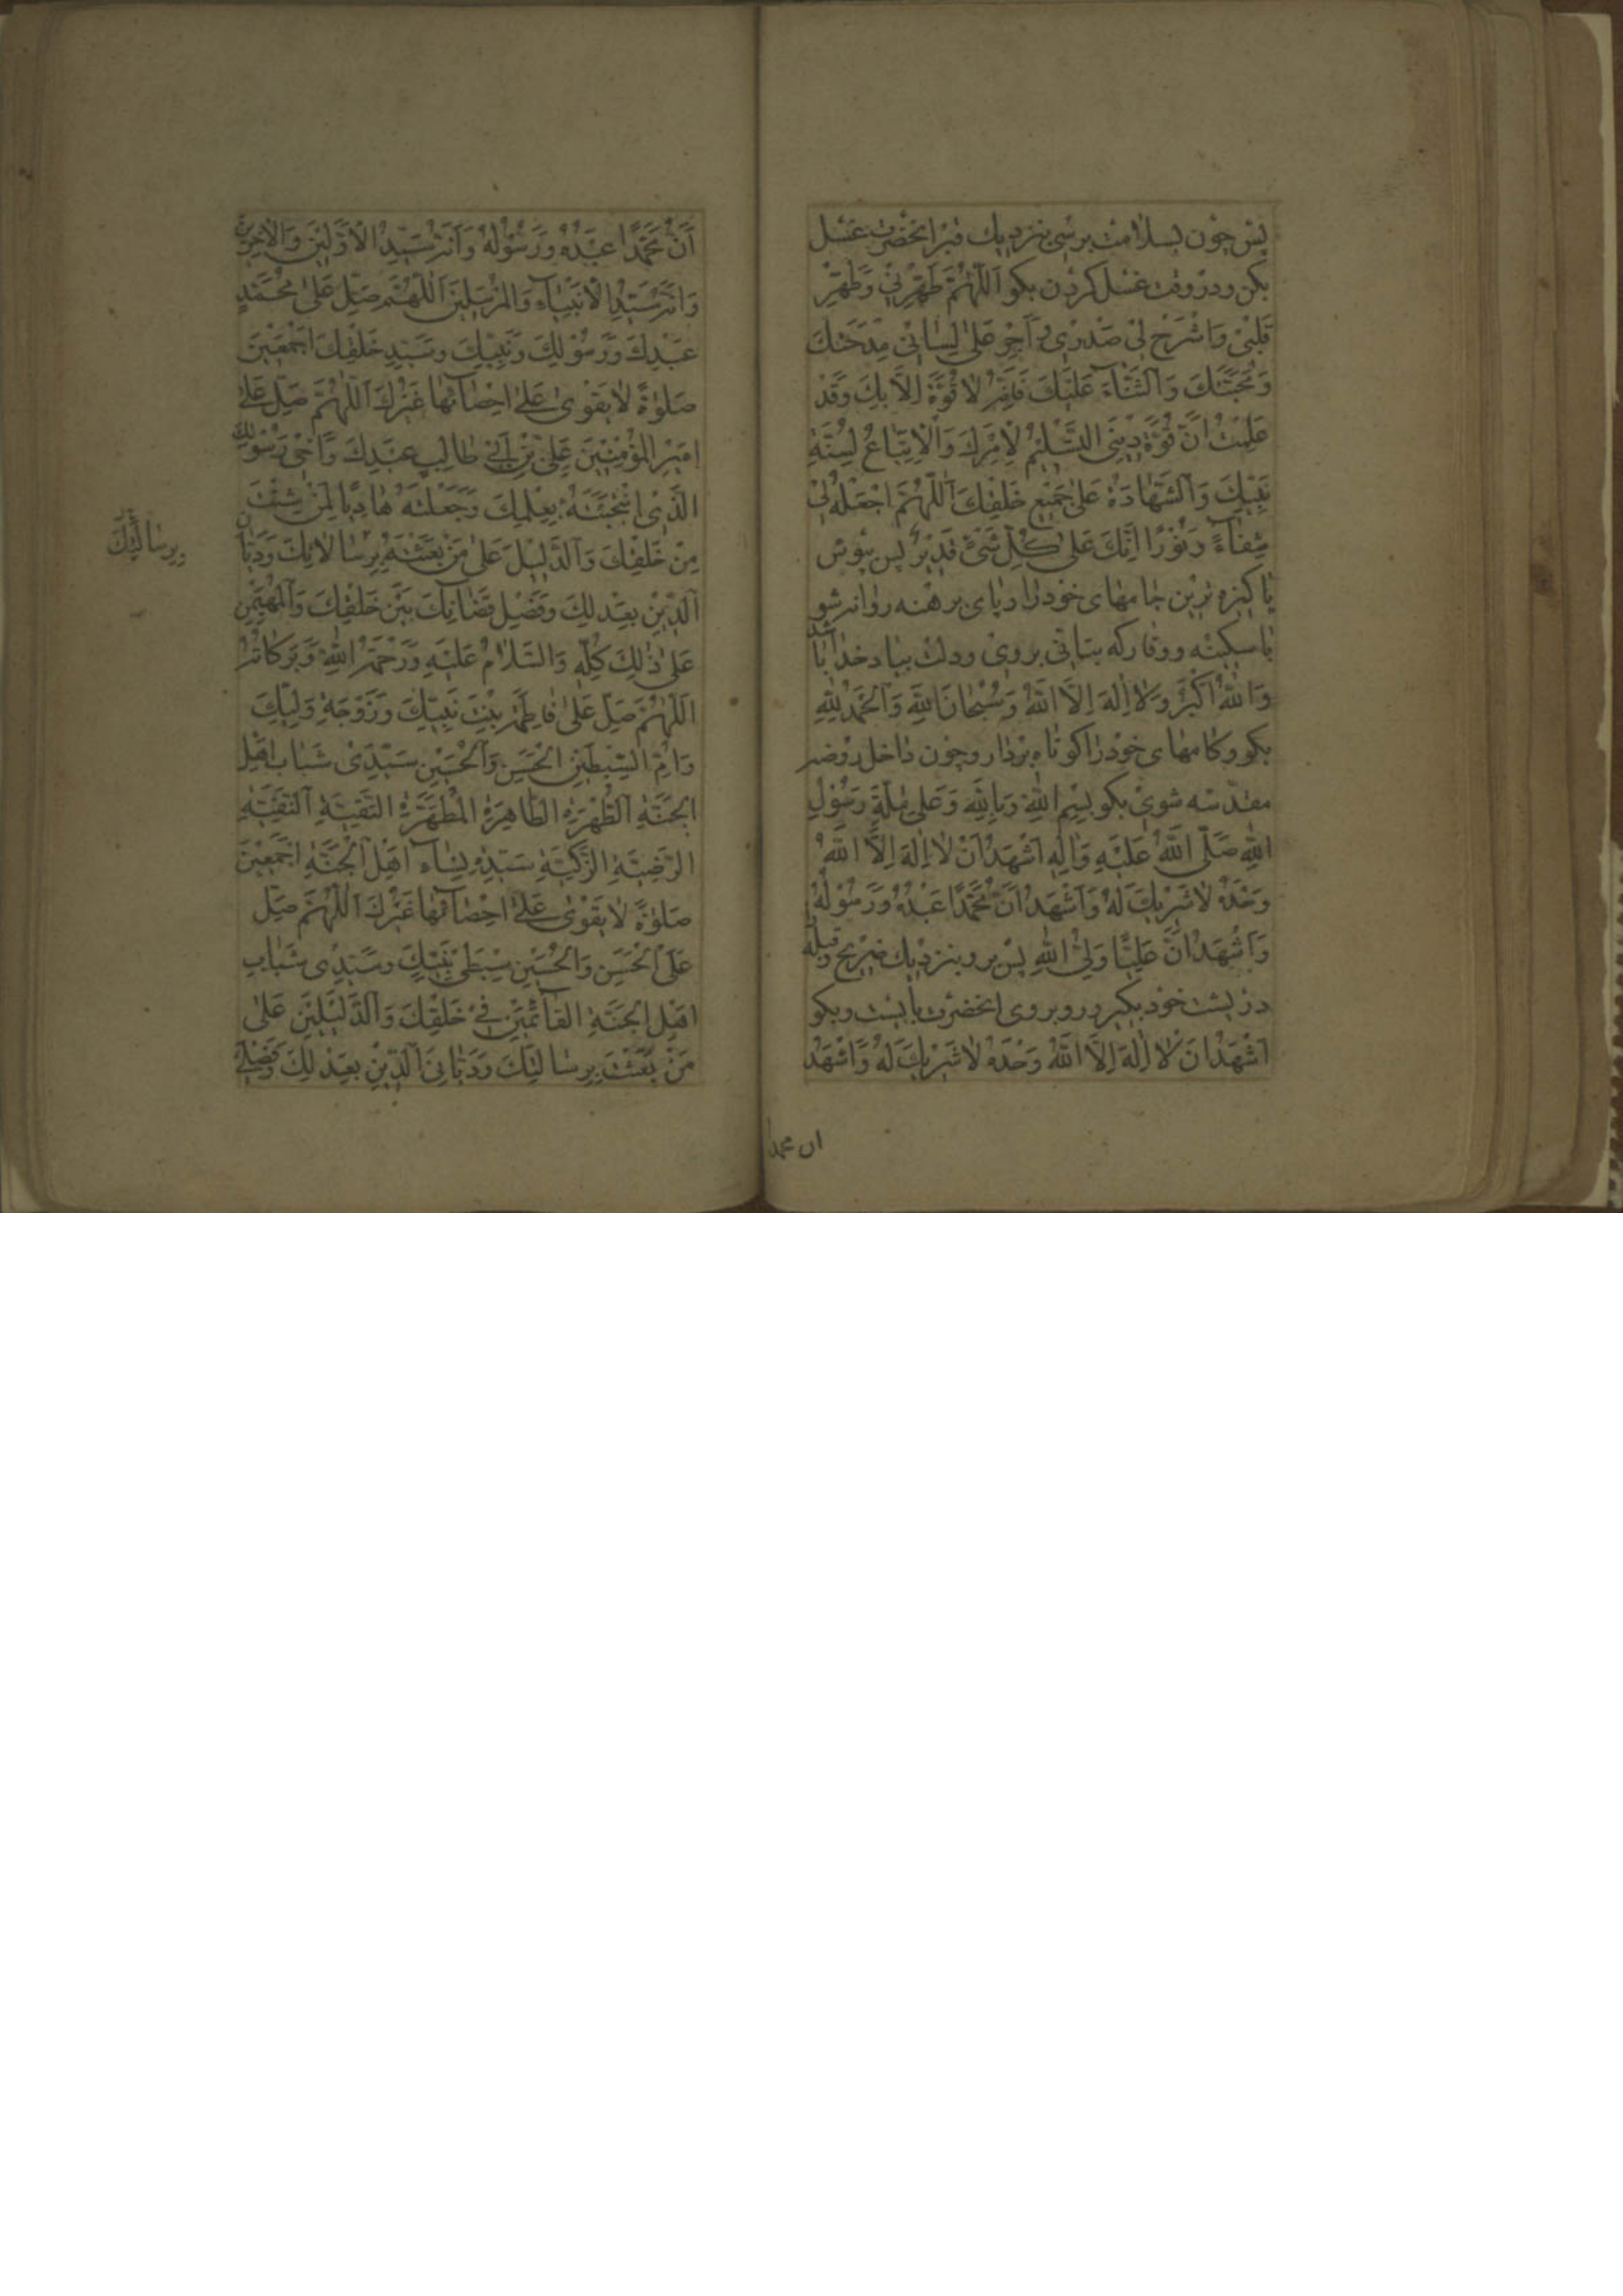 پس چون بسلامت برسی بنزدیك قبر انحضرت غسل
بكن ودر وقت غسل كردن بكو اَللّهُمَّ طَهِّرْنِي وَطَهِّرْ
قَلْبِىْ وَاشْرَحْ لِىْ صَدْرِىْ وَاَجْرِ عَلىٰ لِسٰانِىْ مِدْحَتَكَ
وَمُحَبَّتَكَ وَالثَّنٰآءَ عَلَيْكَ فَاِنَّهُ لٰا قُوَّةَ اِلَّا بِكَ وَقَدْ
عَلِمْتُ اَنَّ قُوَّةَ دِيْنِى التَّسْلِيْمُ لِاَمْرِكَ وَالْاِتِّبٰاعُ لِسُنَّةِ
نَبِيِّكَ وَالشَّهٰادَةُ عَلىٰ جَمِيْعِ خَلْقِكَ اَللّٰهُمَّ اجْعَلْهُ لِىْ
شِفٰآءً وَنُوْرًا اِنَّكَ عَلىٰ كُلِّ شَىْءٍ قَدِيْرٌ پس بپوش
پاكیزه ترین جامهای خود را و پای برهنه روانه شو
باسكینه ووقار كه بتانی بروی ودلت بیاد خدا باشد
وَاللّٰهُ اَكْبَرُ وَلٰا اِلٰهَ اِلَّا اللّٰهُ وَسُبْحٰانَ اللّٰهِ وَالْحَمْدُ لِلّٰهِ
بكو وكامهای خود را كوتاه بردار وچون داخل روضه
مقدسه شوی بكو بِسْمِ اللّٰهِ وَبِاللّٰهِ وَعَلىٰ مِلَّةِ رَسُوْلِ
اللّٰهِ صَلَّى اللّٰهُ عَلَيْهِ وَاٰلِهِ اَشْهَدُ اَنْ لٰا اِلٰهَ اِلَّا اللّٰهُ
وَحْدَهُ لٰا شَرِيْكَ لَهُ وَاَشْهَدُ اَنَّ مُحَمَّدًا عَبْدُهُ وَرَسُوْلُهُ
وَاَشْهَدُ اَنَّ عَلِيًّا وَلِىُّ اللّٰهِ پس برو بنزدیك ضریح وقبله را
در پشت خود بكیر و روبروی انحضرت بایست وبكو
اَشْهَدُ اَنْ لٰا اِلٰهَ اِلَّا اللّٰهُ وَحْدَهُ لٰا شَرِيْكَ لَهُ وَاَشْهَدُ
ان محمدا
اَنَّ مُحَمَّدًا عَبْدُهُ وَرَسُوْلُهُ وَاَنَّهُ سَيِّدُ الْاَوَّلِيْنَ وَالْاٰخِرِيْنَ
وَاَنَّهُ سَيِّدُ الْاَنْبِيٰآءِ وَالْمُرْسَلِيْنَ اَللّٰهُمَّ صَلِّ عَلىٰ مُحَمَّدٍ
عَبْدِكَ وَرَسُوْلِكَ وَنَبِيِّكَ وَسَيِّدِ خَلْقِكَ اَجْمَعِيْنَ
صَلٰوةً لٰا يَقْوىٰ عَلىٰ اِحْصٰآئِهٰا غَيْرُكَ اَللّٰهُمَّ صَلِّ عَلىٰ
اَمِيْرِ الْمُؤْمِنِيْنَ عَلِىِّ بْنِ اَبِىْ طٰالِبٍ عَبْدِكَ وَاَخِىْ رَسُوْلِكَ
الَّذِىْ انْتَجَبْتَهُ بِعِلْمِكَ وَجَعَلْتَهُ هٰادِيًا لِمَنْ شِئْتَ
مِنْ خَلْقِكَ وَالدَّلِيْلَ عَلىٰ مَنْ بَعَثْتَهُ بِرِسٰالٰاتِكَ وَدَيّٰانَ
بِرِسٰالَتِكَ
الدِّيْنِ بِعَدْلِكَ وَفَصْلِ قَضٰائِكَ بَيْنَ خَلْقِكَ وَالْمُهَيْمِنِ
عَلىٰ ذٰلِكَ كُلِّهِ وَالسَّلٰامُ عَلَيْهِ وَرَحْمَةُ اللّٰهِ وَبَرَكٰاتُهُ
اَللّٰهُمَّ صَلِّ عَلىٰ فٰاطِمَةَ بِنْتِ نَبِيِّكَ وَزَوْجَةِ وَلِيِّكَ
وَاُمِّ السِّبْطَيْنِ الْحَسَنِ وَالْحُسَيْنِ سَيِّدَىْ شَبٰابِ اَهْلِ
الْجَنَّةِ الطُّهْرَةِ الطّٰاهِرَةِ الْمُطَهَّرَةِ التَّقِيَّةِ النَّقِيَّةِ
الرَّضِيَّةِ الزَّكِيَّةِ سَيِّدَةِ نِسٰآءِ اَهْلِ الْجَنَّةِ اَجْمَعِيْنَ
صَلٰوةً لٰا يَقْوىٰ عَلىٰ اِحْصٰآئِهٰا غَيْرُكَ اَللّٰهُمَّ صَلِّ
عَلَى الْحَسَنِ وَالْحُسَيْنِ سِبْطَىْ نَبِيِّكَ وَسَيِّدَىْ شَبٰابِ
اَهْلِ الْجَنَّةِ الْقٰآئِمَيْنِ فِىْ خَلْقِكَ وَالدَّلِيْلَيْنِ عَلىٰ
مَنْ بَعَثْتَ بِرِسٰالَتِكَ وَدَيّٰانَىِ الدِّيْنِ بِعَدْلِكَ وَفَصْلَىْ